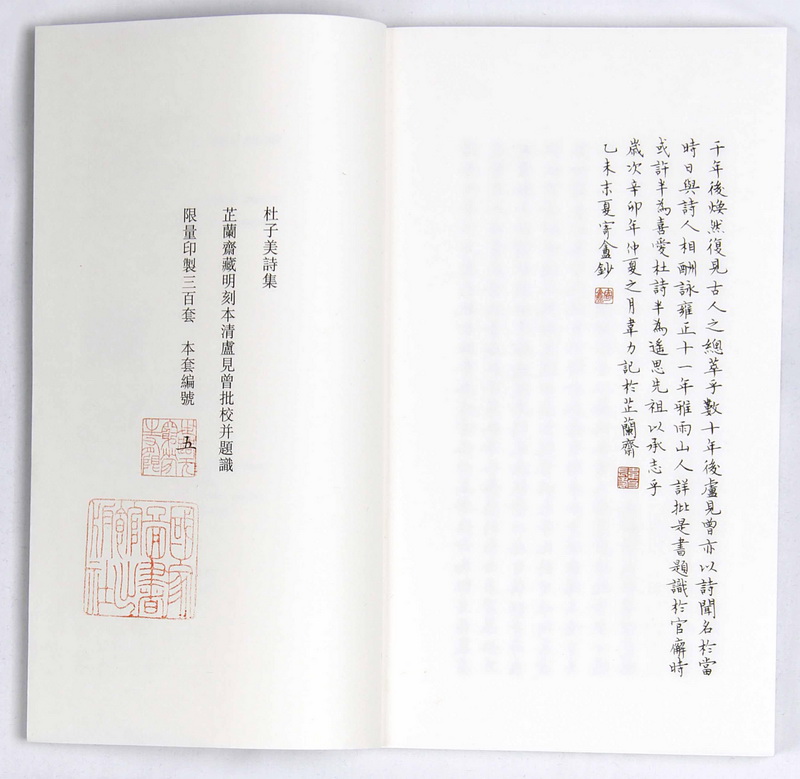 千年後煥然復見古人之總萃乎數十年後盧見曾亦以詩聞名於當
時日與詩人相酬詠雍正十一年雅雨山人詳批是書題識於官廨時
或許半為喜愛杜詩半為遙思先祖以承志乎
歲次辛卯年仲夏之月韋力記於芷蘭齋
乙未末夏寄盦鈔
杜子美詩集
芷蘭齋藏明刻本清盧見曾批校并題識
限量印製三百套　本套編號
五
國家圖書館出版社